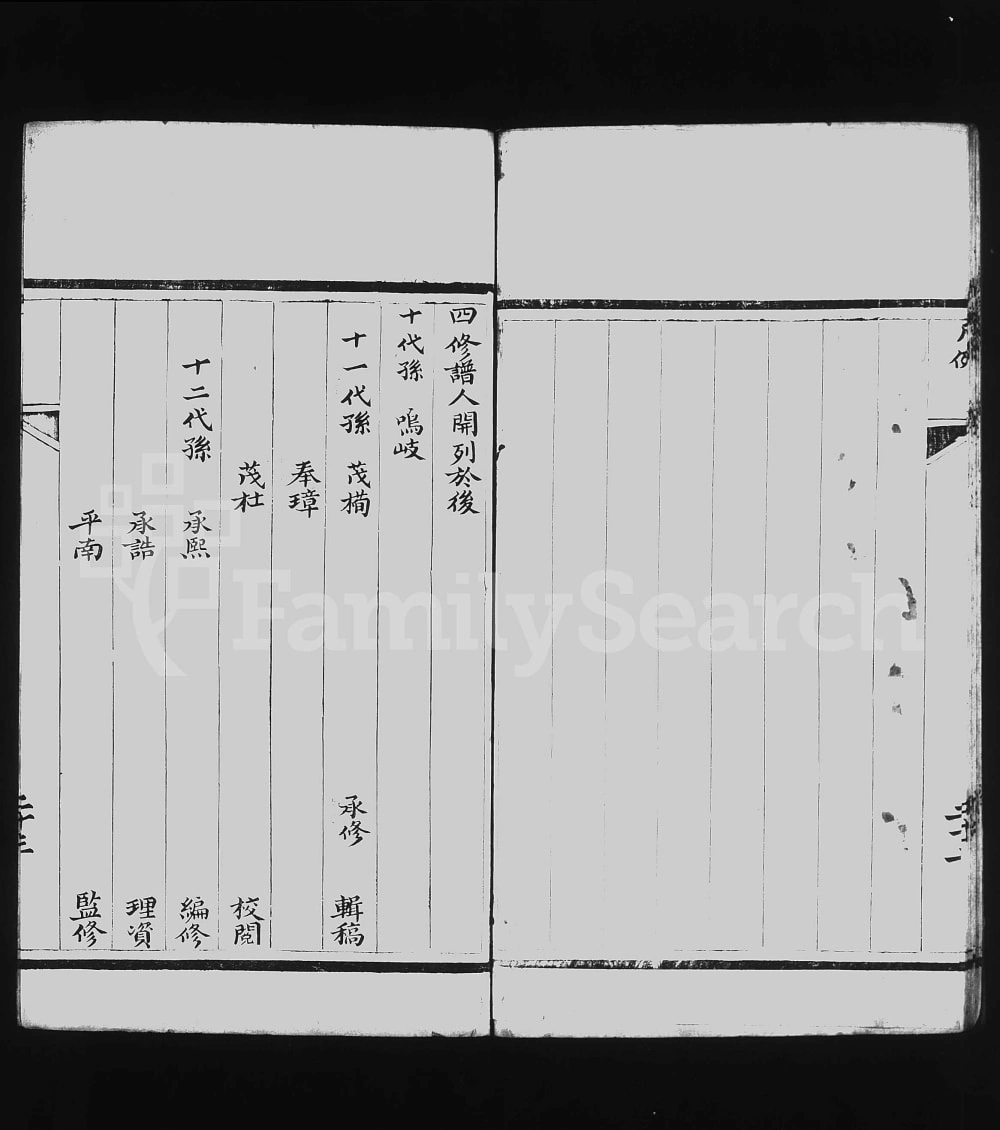 凡例
四修譜人開列於後
十代孫 鳴岐
十一代孫 茂橚 承修 輯稿
奉璋
茂杜 校閱
十二代孫 承熙 編修
承誥 理資
平南 監修
FamilySearch